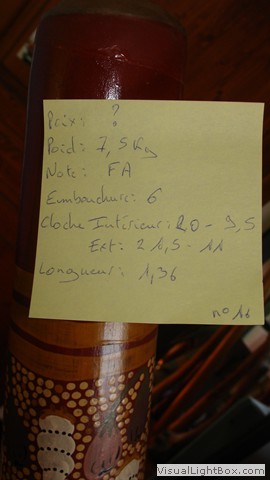 Prix: ?
Poid: 7,5 Kg
Note: FA
Embouchure: 6
Cloche Intérieur: 20 - 9,5
Ext: 21,5 - 11
Longueur: 1,36
n° 16
VisualLightBox.com